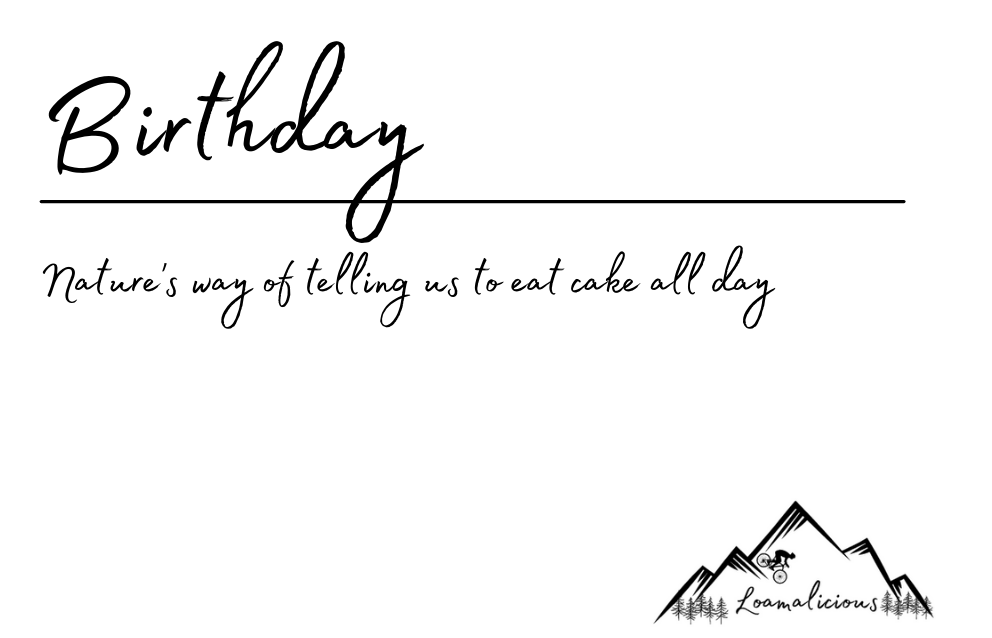 Birthday
Nature's way of telling us to eat cake all day
Loamalicious